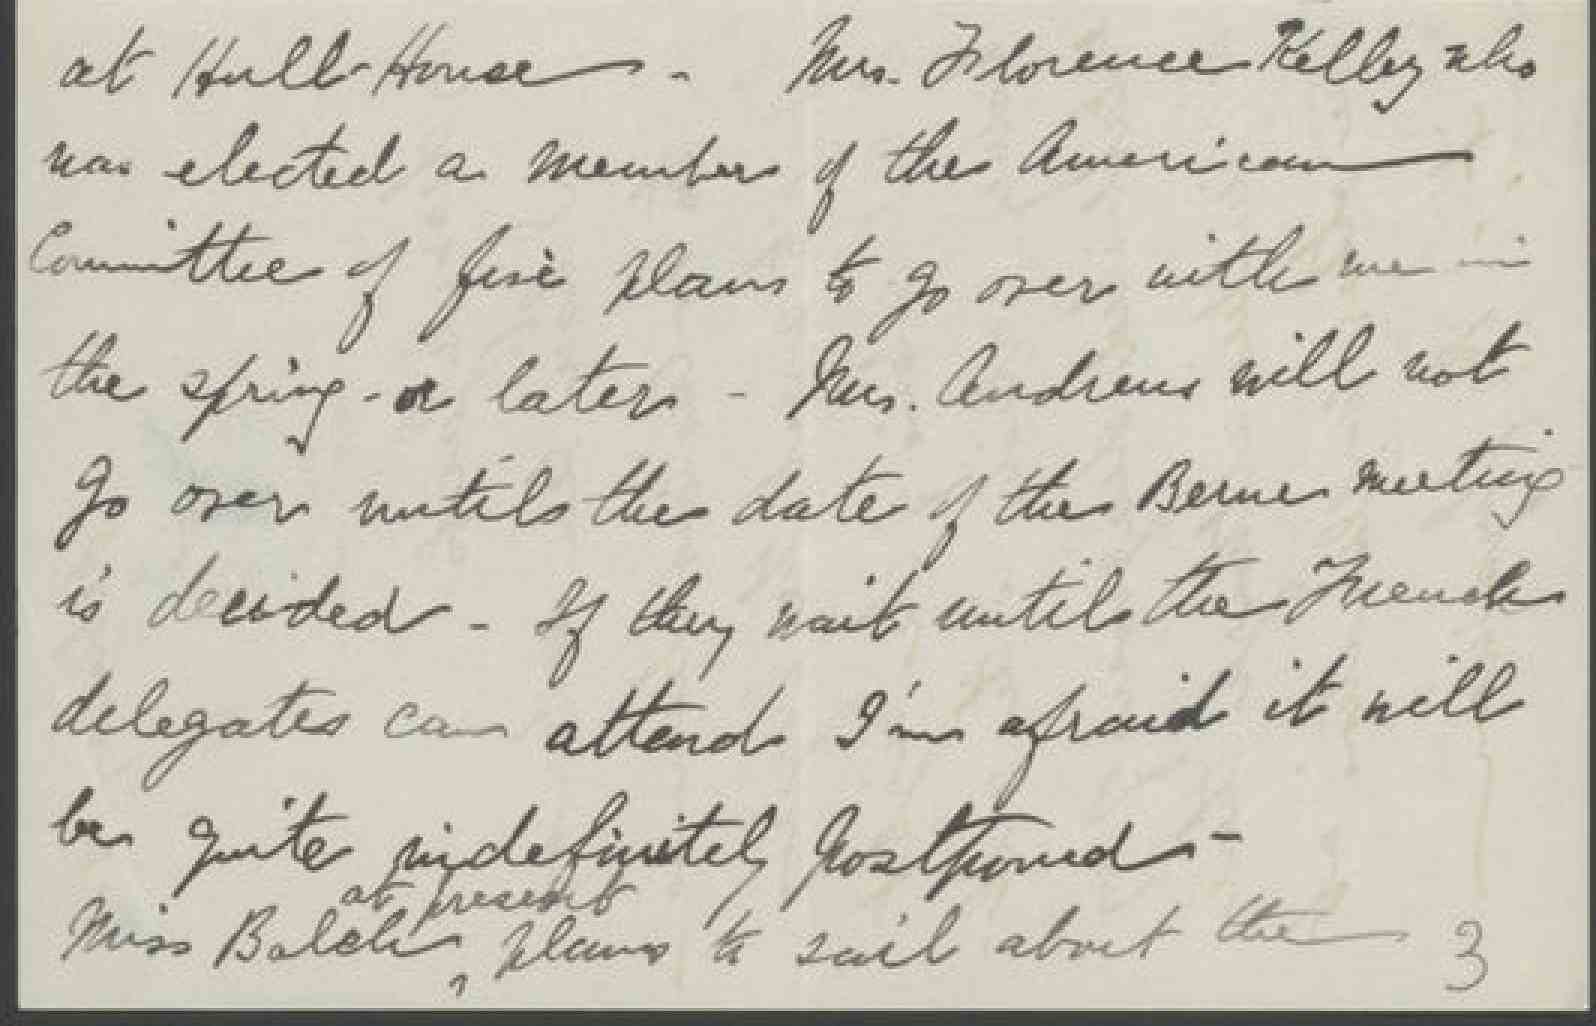 at Hull-House - Mrs. Florence Kelley who
was elected a member of the American
Committee of five plans to go over with me in
the spring - or later - Mrs. Andrews will not
go over until the date of the Berne meeting
is decided - If they wait until the French
delegates can attend I'm afraid it will
be quite indefinitely postponed -
at present
Miss Balch ^ plans to sail about the
3